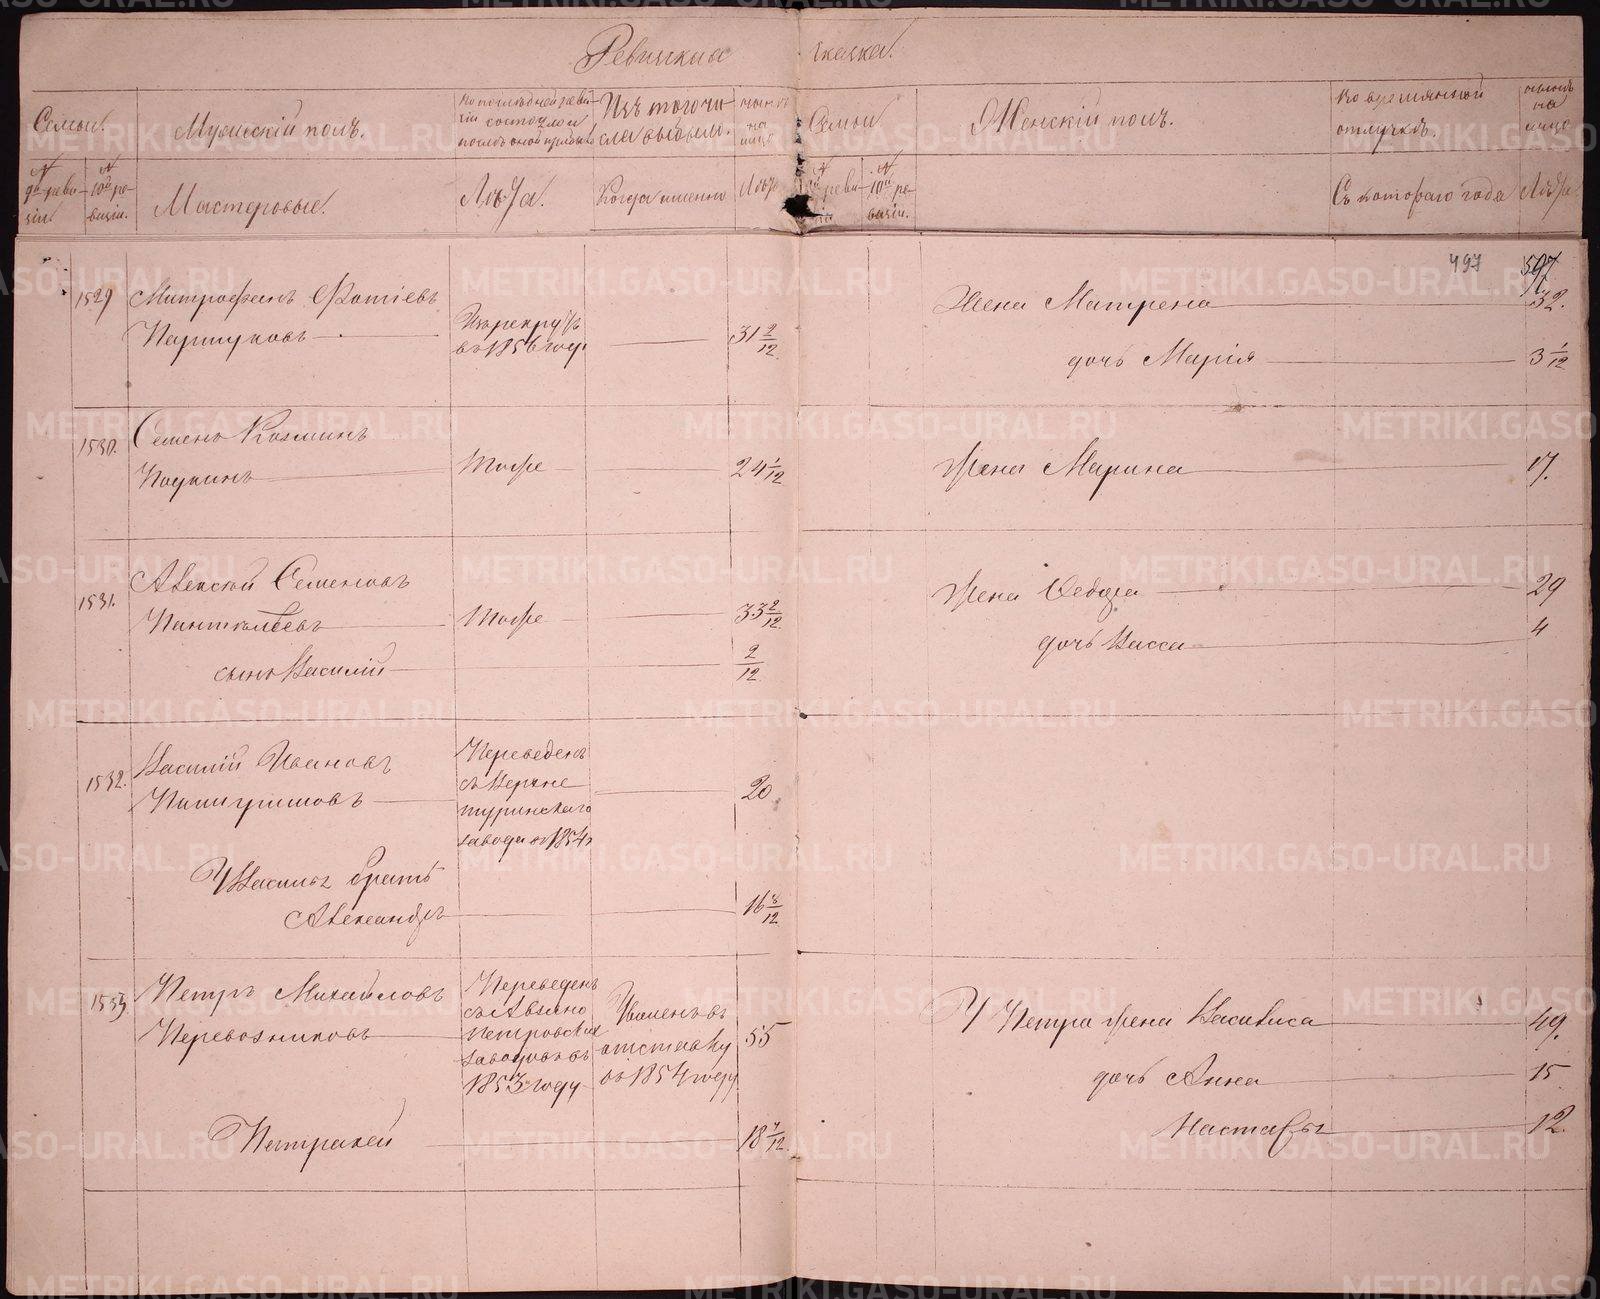 Ревизская сказка.
Семьи.
Мужескій полъ.
По последней реви-
зіи состояло и
после оной прибыло
Изъ того чи-
сла выбыло.
ныне
на
лицо
Семьи
Женскій полъ.
Во временной
отлучке.
ныне
на
лицо
№
9й реви-
зіи
№
10й ре-
визіи.
Мастеровые.
Лета.
Когда именно
Лета
№
реви-
зіи
№
10й ре-
визіи.
Съ котораго года
Лета
497
597
1529
Митрофанъ Фотіевъ
Паршуковъ
Изъ рекрутъ
въ 1856 году
31 2/12
Жена Матрена
32.
дочь Марія
3 1/12
1530.
Семенъ Козминъ
Тоже
24 1/12
Жена Марина
17.
1531.
Алексей Семеновъ
Пантелеевъ
Тоже
33 2/12
сынъ Василій
2/12
Жена Федора
29
дочь Васса
4
1532.
Василій Ивановъ
Переведенъ
съ Верхне
туринскаго
завода въ 1854 г
20
У Василья братъ
Александръ
16 8/12
1533
Петръ Михайловъ
Перевозниковъ
Переведенъ
Петровскихъ
заводовъ въ
1853 году
Уволенъ въ
отставку
въ 1854 году
55
Петра жена Василиса
49.
дочь Анна
15
Настасья
12.
18 7/12
METRIKI.GASO-URAL.RU